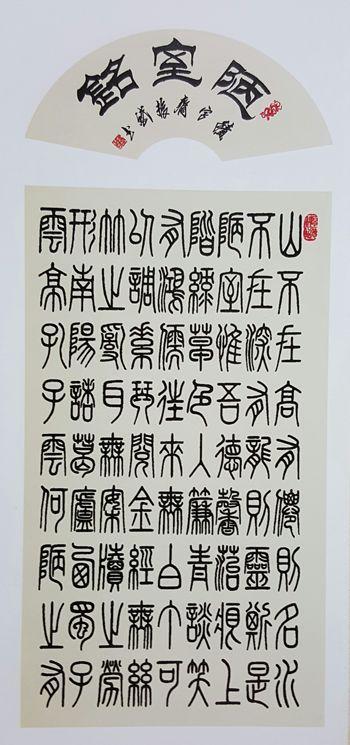 陋室銘
山不在高有僊則名水
不在深有龍則靈斯是
陋室惟吾德馨菭痕上
階綠草色入簾青談笑
有鴻儒往來無白丁可
以調素琴閱金經無絲
竹之亂耳無案牘之勞
形南陽諸葛廬西蜀子
雲亭孔子雲何陋之有